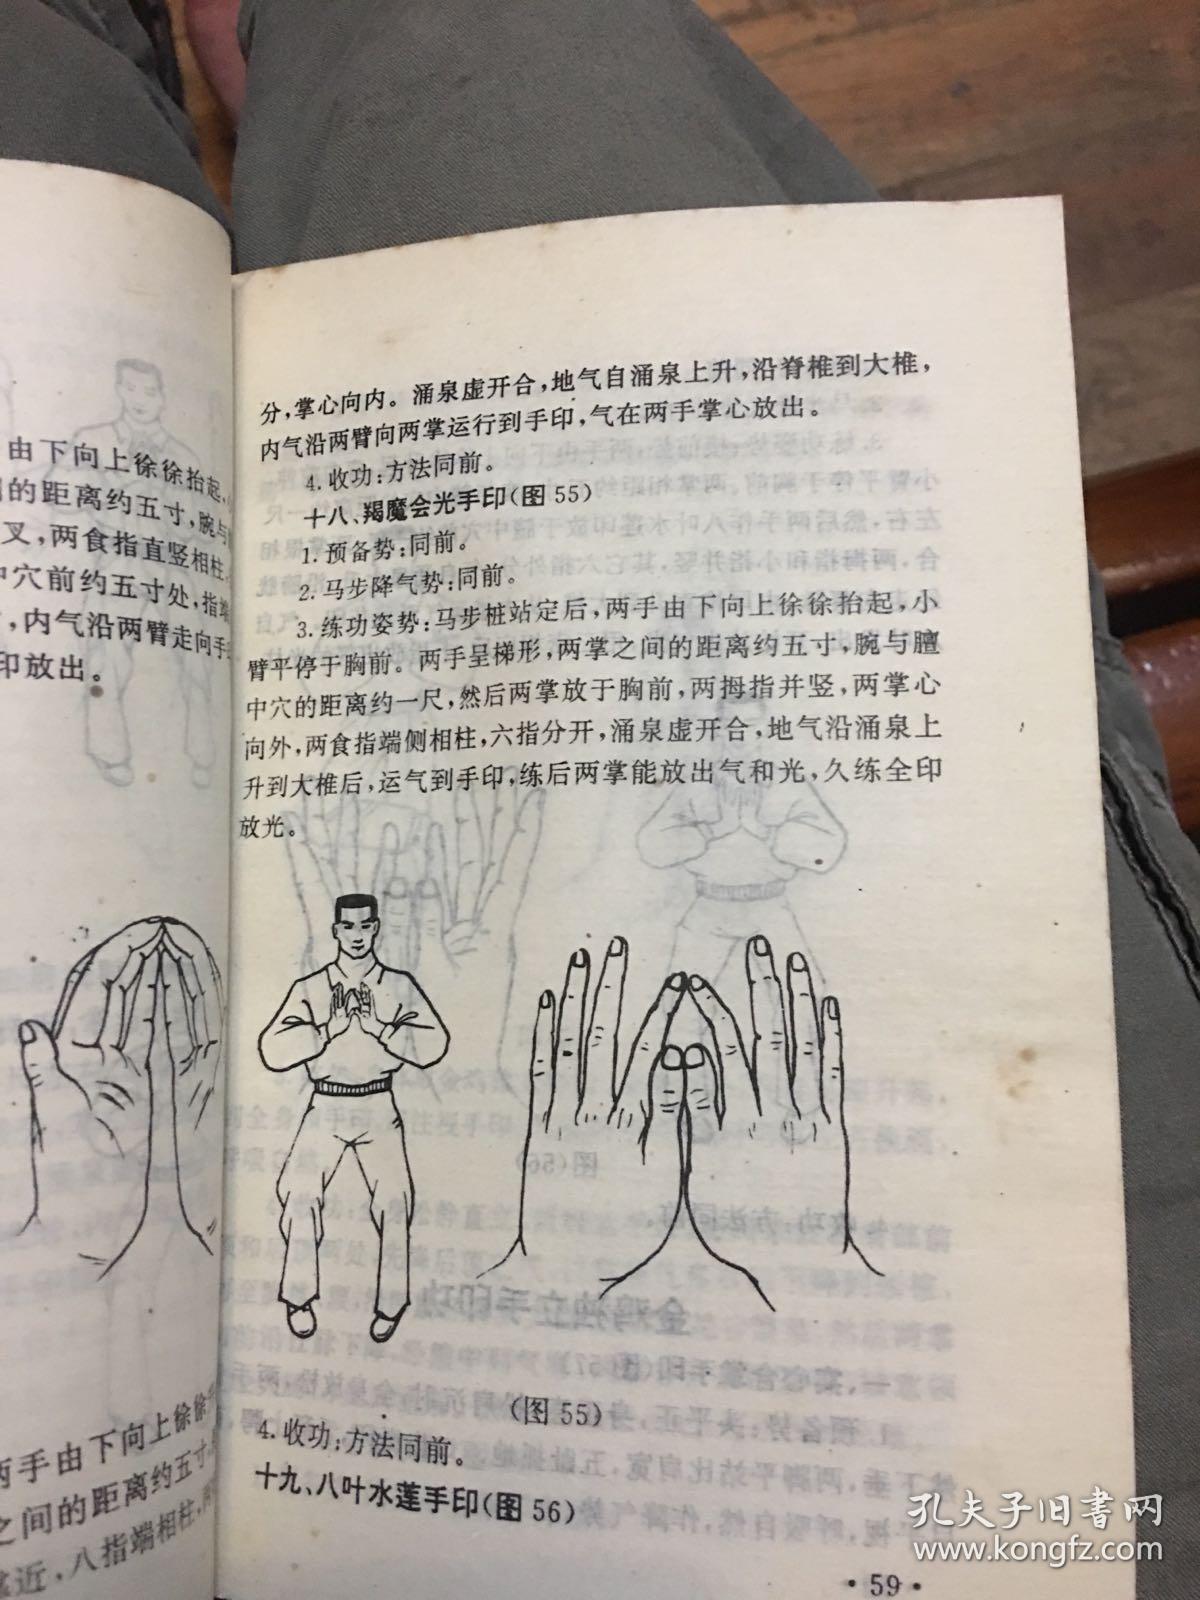 由下向上徐徐抬起，
的距离约五寸，腕与
叉，两食指直竖相柱，
中穴前约五寸处，指端
，内气沿两臂走向手
印放出。
两手由下向上徐徐
之间的距离约五寸，
靠近，八指端相柱，
分，掌心向内。涌泉虚开合，地气自涌泉上升，沿脊椎到大椎，
内气沿两臂向两掌运行到手印，气在两手掌心放出。
4. 收功：方法同前。
十八、羯魔会光手印（图55）
1. 预备势：同前。
2. 马步降气势：同前。
3. 练功姿势：马步桩站定后，两手由下向上徐徐抬起，小
臂平停于胸前。两手呈梯形，两掌之间的距离约五寸，腕与膻
中穴的距离约一尺，然后两掌放于胸前，两拇指并竖，两掌心
向外，两食指端侧相柱，六指分开，涌泉虚开合，地气沿涌泉上
升到大椎后，运气到手印，练后两掌能放出气和光，久练全印
放光。
（图55）
4. 收功：方法同前。
十九、八叶水莲手印（图56）
·59·
孔夫子旧书网
www.kongfz.com